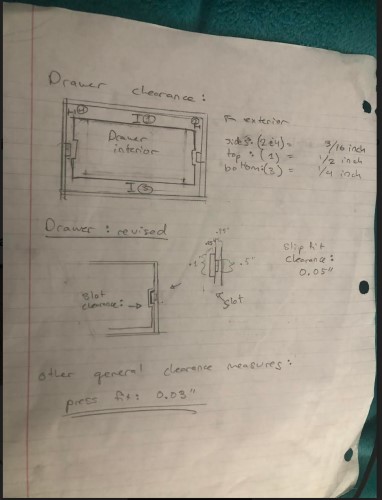 Drawer clearance:
I(1)
Drawer
interior
I(3)
exterior
sides: (2&4) = 3/16 inch
top: (1) = 1/2 inch
bottom: (3) = 1/4 inch
Drawer: revised
.5"
slot
Slot
clearance:
Slip fit
clearance:
0.05"
other general clearance measures:
press fit: 0.03"